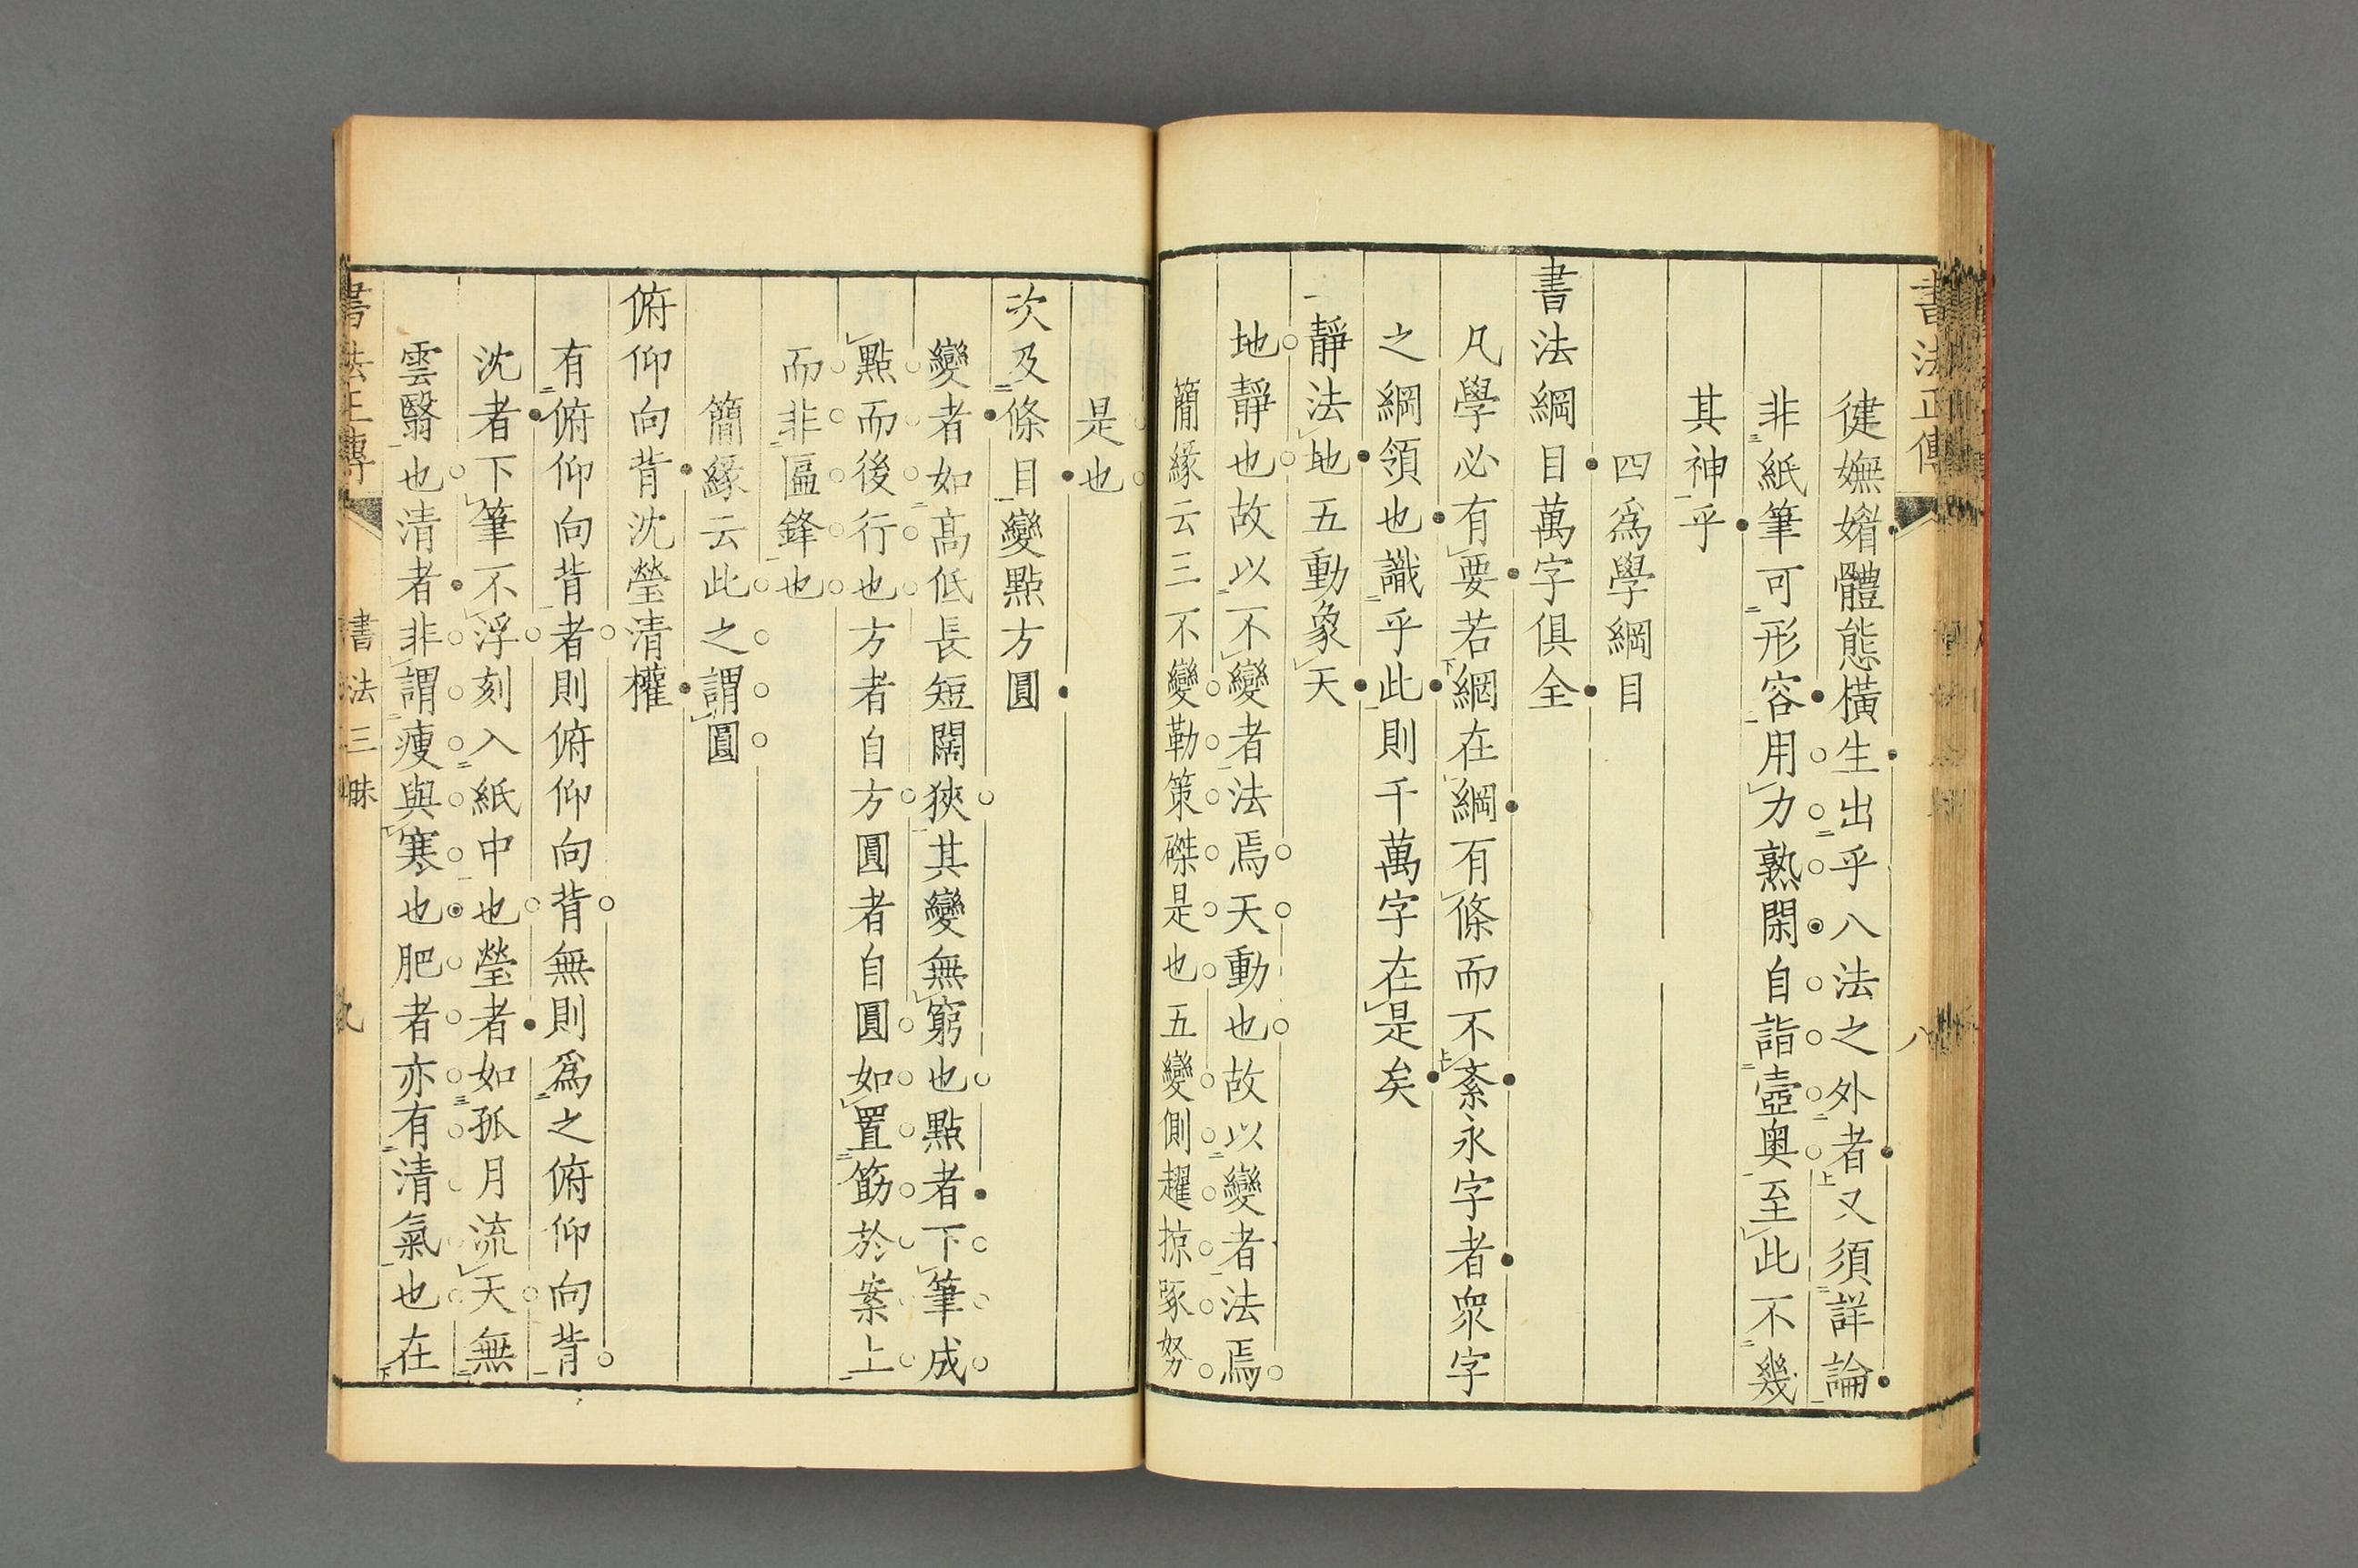 書法正傳
八
健嫵媚體態橫生出乎八法之外者又須詳論
非紙筆可形容用力熟閑自詣壺奥至此不幾
其神乎
四爲學綱目
書法綱目萬字俱全
凡學必有要若網在綱有條而不紊永字者衆字
之綱領也識乎此則千萬字在是矣
一靜法地五動象天
地靜也故以不變者法焉天動也故以變者法焉
簡緣云三不變勒策磔是也五變側趯掠啄努
是也
次及條目變點方圓
變者如高低長短闊狹其變無窮也點者下筆成
點而後行也方者自方圓者自圓如置筯於案上
而非匾鋒也
簡緣云此之謂圓
俯仰向背沈瑩清權
有俯仰向背者則俯仰向背無則爲之俯仰向背
沈者下筆不浮刻入紙中也瑩者如孤月流天無
雲翳也清者非謂瘦與寒也肥者亦有清氣也在
書法正傳
書法三昧
九